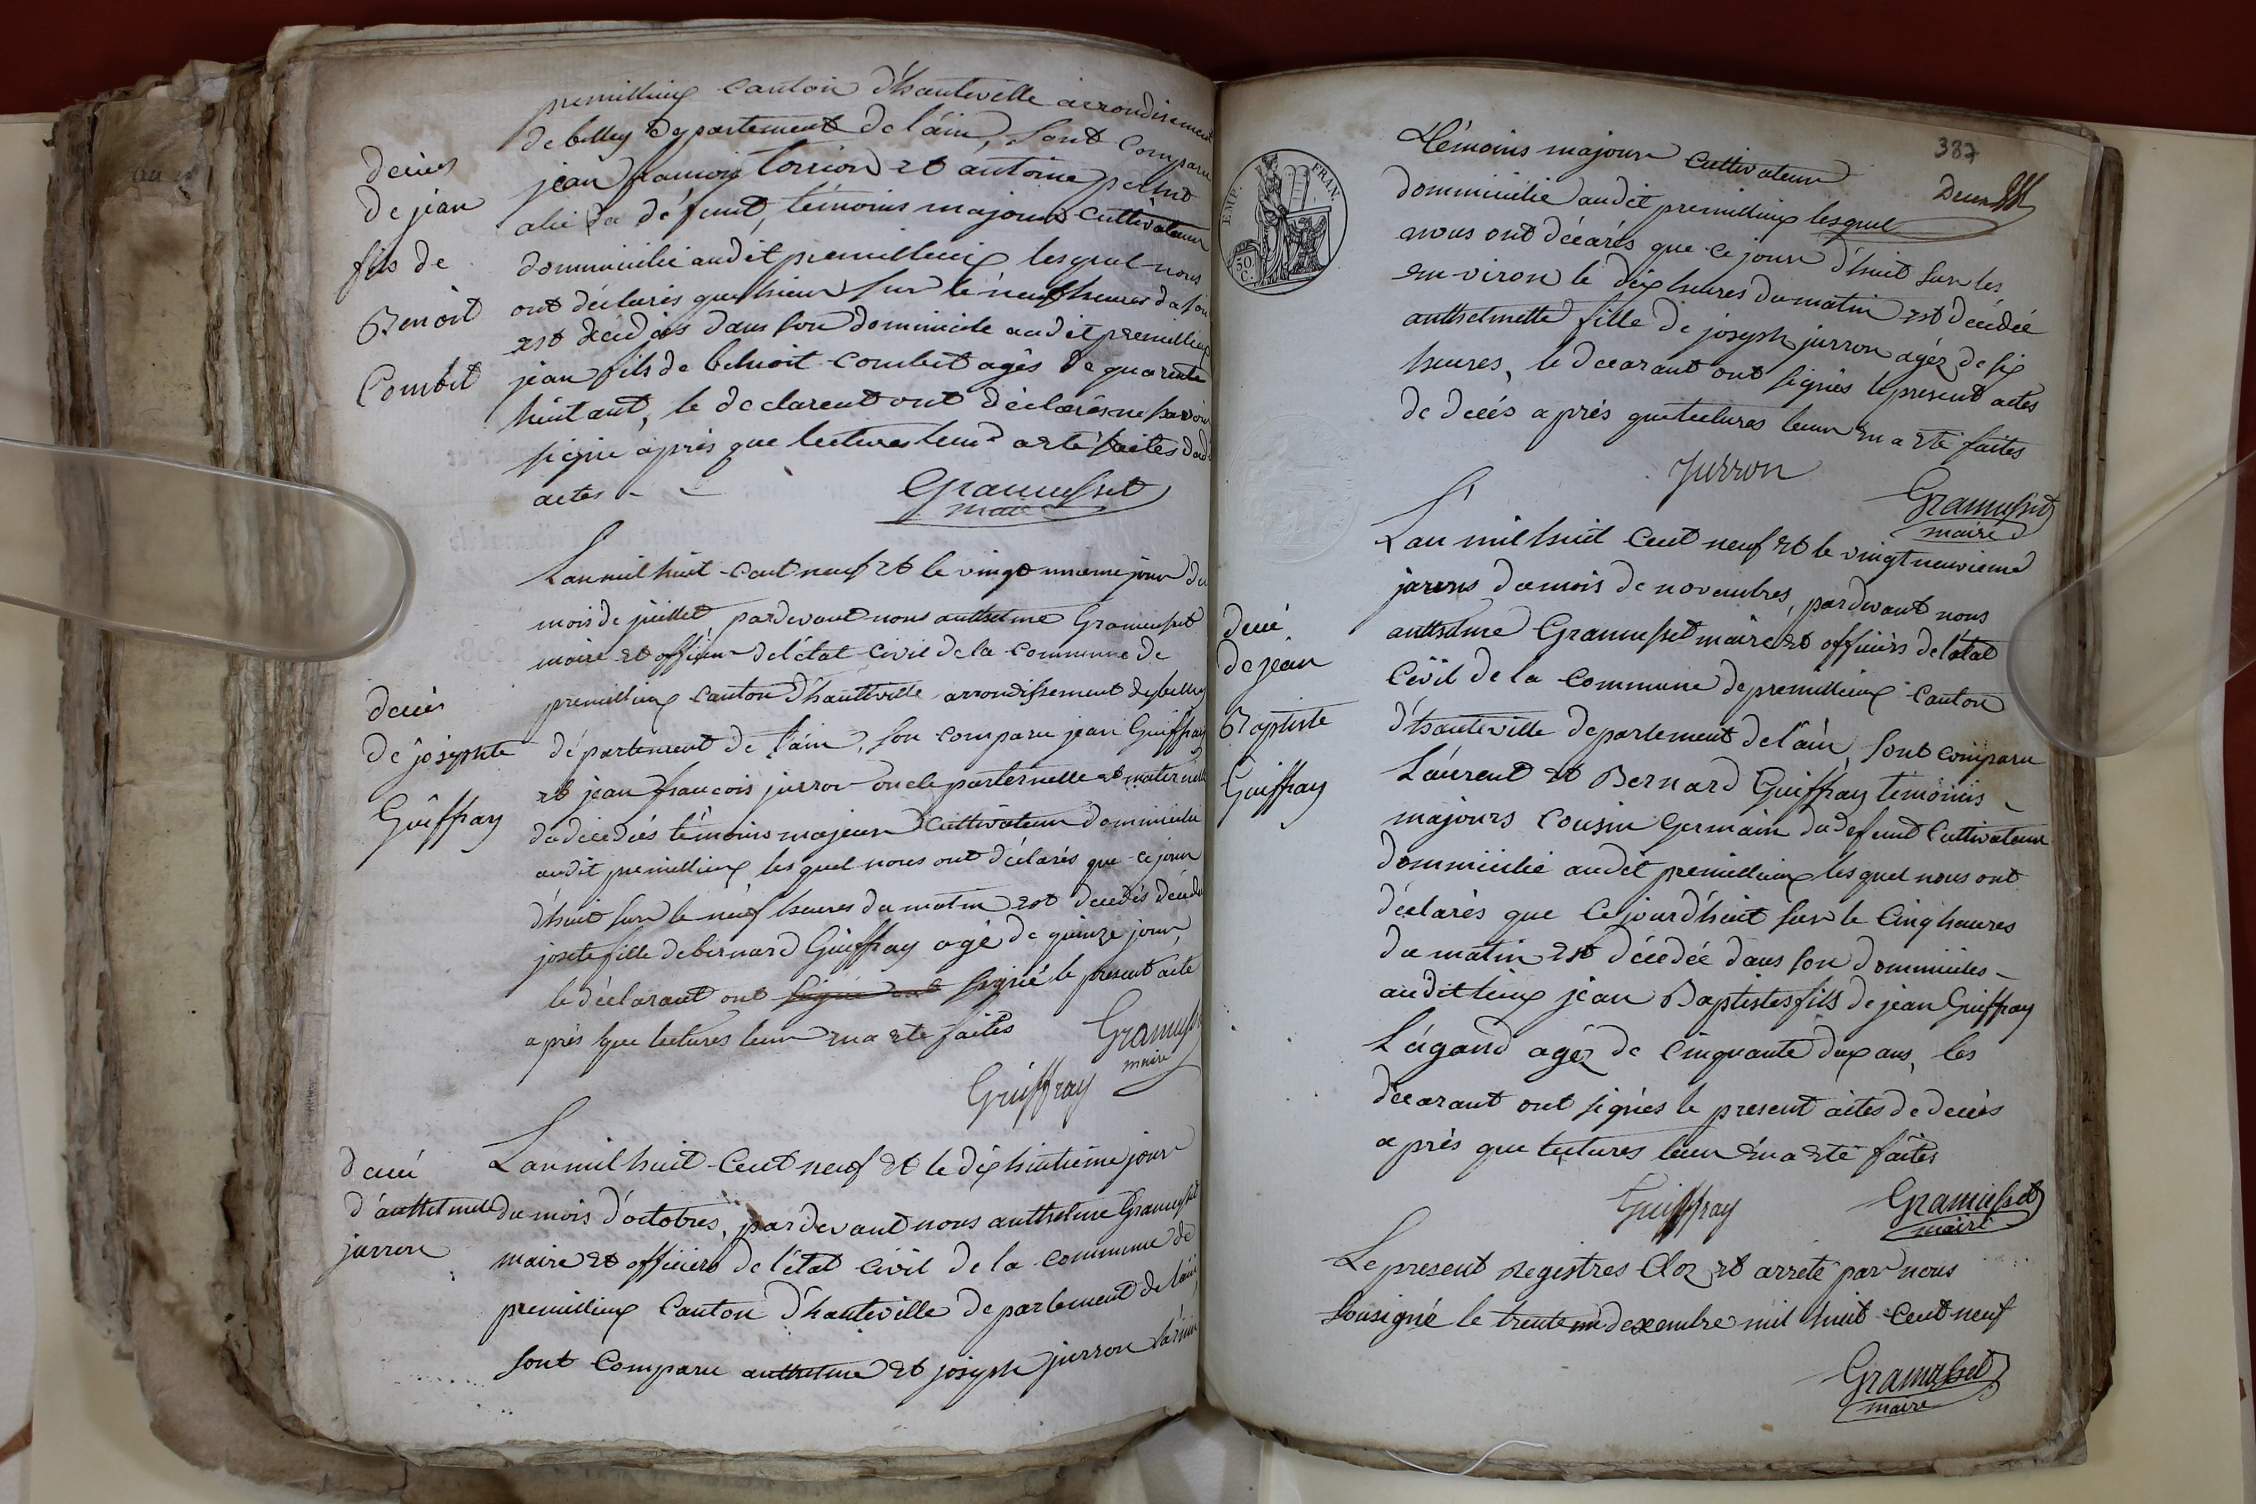 premillieux canton d'hauteville arrondisement
de belley departement de l'ain, sont comparu
jean françois torrion et antoine
alié da défunt, témoins majeurs cultivateur
dommicilié audit premillieux lesquel nous
ont déclarés que hieur sur le neuf heures da soir
est décédés dans son dommicile audit premillieux
jean fils de behnoit combet agés de quarente
huit ant, le declarent ont déclarés ne savoir
signé aprés que lectures leur a eté faites dud
actes
Gramusset
maire
décés
de jean
fils de
Benoit
Combet
L'an mil huit cent neuf et le vingt unieme jour du
mois de juillet pardevant nous anthelme Gramusset
maire et officier de l'état civil de la commune de
premillieux canton d'hauteville arrondissement de belley
département de l'ain, son comparu jean Guiffray
et jean françois jurron oncle parternelle et maternelle
du décédés témoins majeur cultivateur dommicilié
audit premillieux lesquel nous ont déclarés que ce jour
d'huit sur le neuf heures du matin est decedés
josete fille de bernard Guiffray agé de quinze jour,
le déclarant ont signé ont signé le present acte
aprés que lectures leur en a eté faites
Gramusset
maire
Guiffray
décés
de josephte
Guiffray
L'an mil huit cent neuf et le dix huitieme jour
du mois d'octobres, pardevant nous anthelme Gramusset
maire et officiers de l'état civil de la commune de
premillieux canton d'hauteville departement de l'ain
sont comparu anthelme et joseph jurron
décé
d'anthelmette
jurron
387
témoins majour cultivateur
dommicilié audit premillieux lesquel
nous ont décarés que ce jour d'huit sur les
environ le dix heures du matin est décédée
anthelmette fille de joseph jurron agéz de six
heures, le decarant ont signés le present actes
de decés aprés que lectures leur en a eté faites
Jurron
Gramusset
maire
EMP. FRAN.
50 C.
L'an mil huit cent neuf et le vingt neuvieme
jours du mois de novembres, pardevant nous
anthelme Gramusset maire et officiérs de l'état
Civil de la commune de premillieux canton
d'hauteville departement de l'ain, sont comparu
Laurent et Bernard Guiffray témoins
majours cousin germain du defunt cultivateur
dommicilié audit premillieux lesquel nous ont
déclarés que ce jour d'huit sur le cinq heures
du matin est décédée dans son dommiciles
audit lieux jean Baptistes fils de jean Guiffray
Légand agéz de cinquante dix ans, les
décarant ont signés le present actes de decés
aprés que lectures leur en a eté faites
Guiffray
Gramusset
maire
décé
de jean
Baptiste
Guiffray
Le present registres cloz et arreté par nous
sousigné le trente un dexembre mil huit cent neuf
Gramusset
maire